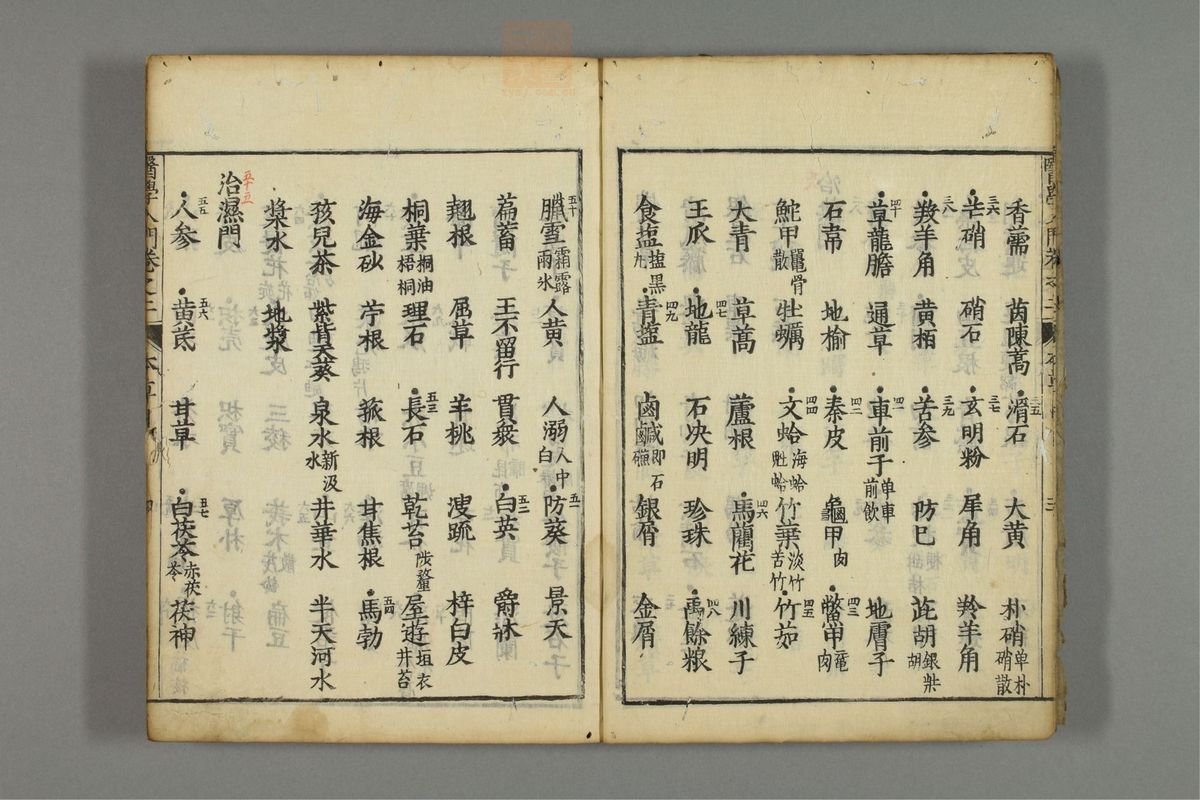 香薷 茵陳蒿 滑石 大黄 朴硝 单朴硝散
芒硝 硝石 玄明粉 犀角 羚羊角
羖羊角 黄栢 苦参 防巳 茈胡 銀柴胡
草龍膽 通草 車前子 单車前飲 地膚子
石韋 地榆 秦皮 龜甲 肉 鱉甲 黿肉
鮀甲 鼍骨散 牡蠣 文蛤 海蛤魁蛤 竹葉 淡竹苦竹 竹茹
大青 草蒿 蘆根 馬藺花 川練子
王瓜 地龍 石决明 珍珠 禹餘粮
食盐 盐黒丸 青盐 鹵鹹 即石鹵礆 銀屑 金屑
臘雪 霜露雨氷 人黄 人溺 人中白 防葵 景天
萹蓄 王不留行 貫衆 白英 爵牀
翹根 屈草 羊桃 溲疏 梓白皮
桐葉 桐油梧桐 理石 長石 乾苔 陟釐 屋遊 垣衣井苔
海金砂 苧根 菰根 甘焦根 馬勃
孩兒茶 紫背天葵 泉水 新汲水 井華水 半天河水
漿水 地漿
五十五
治濕門
人参 黄茋 甘草 白茯苓 赤茯苓 茯神
醫學入門卷之二 本草